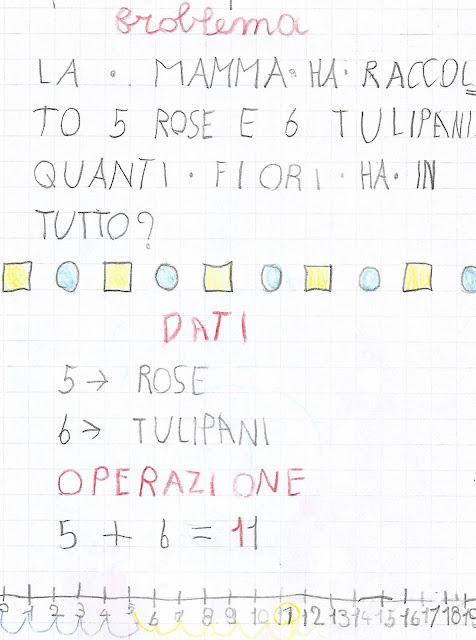 problema
LA MAMMA HA RACCOL
TO 5 ROSE E 6 TULIPANI
QUANTI FIORI HA IN
TUTTO?
DATI
5 → ROSE
6 → TULIPANI
OPERAZIONE
5 + 6 = 11
0 1 2 3 4 5 6 7 8 9 10 11 12 13 14 15 16 17 18 19